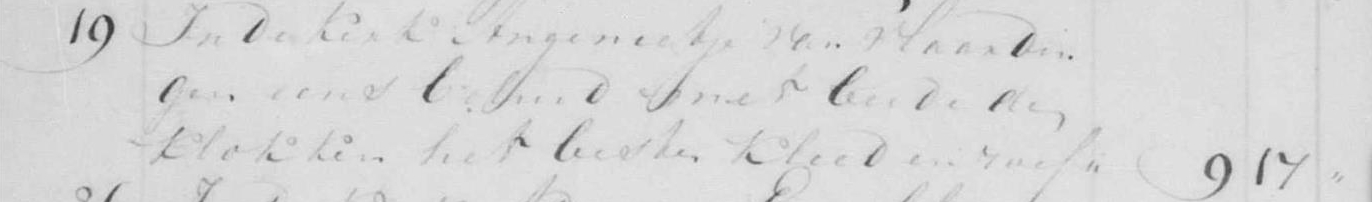 19 In de kerk Angenietje van Vlaardin
gen eens beluid met beide de
klokken het beste kleed en roef " 9 17 "